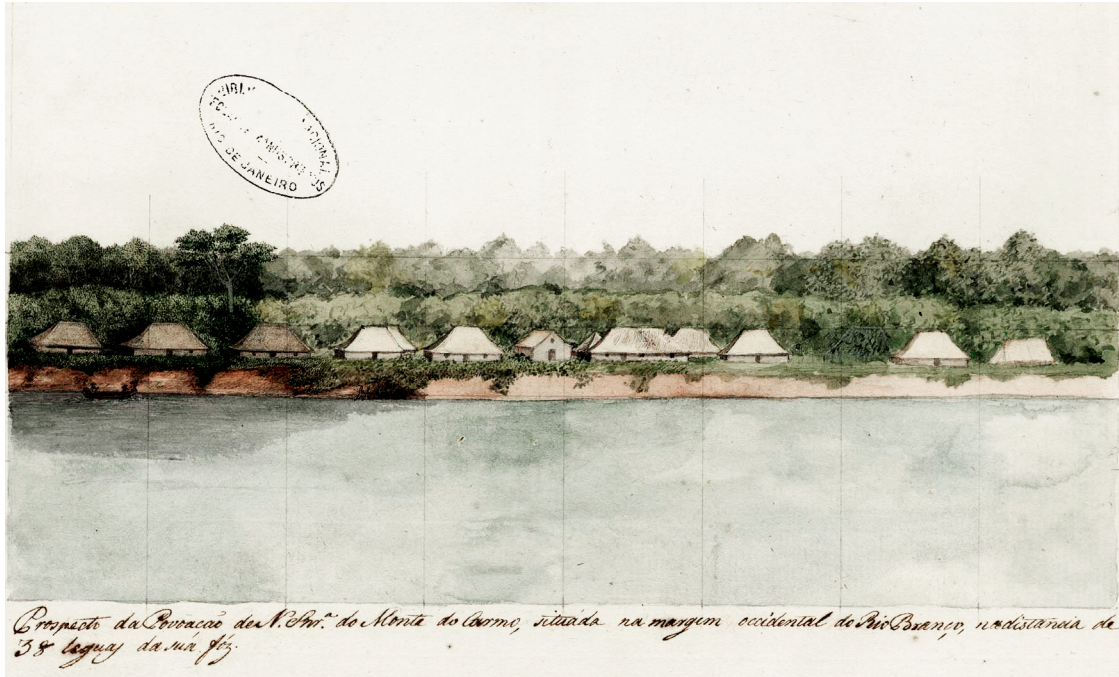 NACIONAL
RIO DE JANEIRO
Prospecto da Povoacaõ de N. Snr.ª do Monte do Carmo, situáda na margem occidental do Rio Branco, na distancia de
38 leguas da súa fóz.